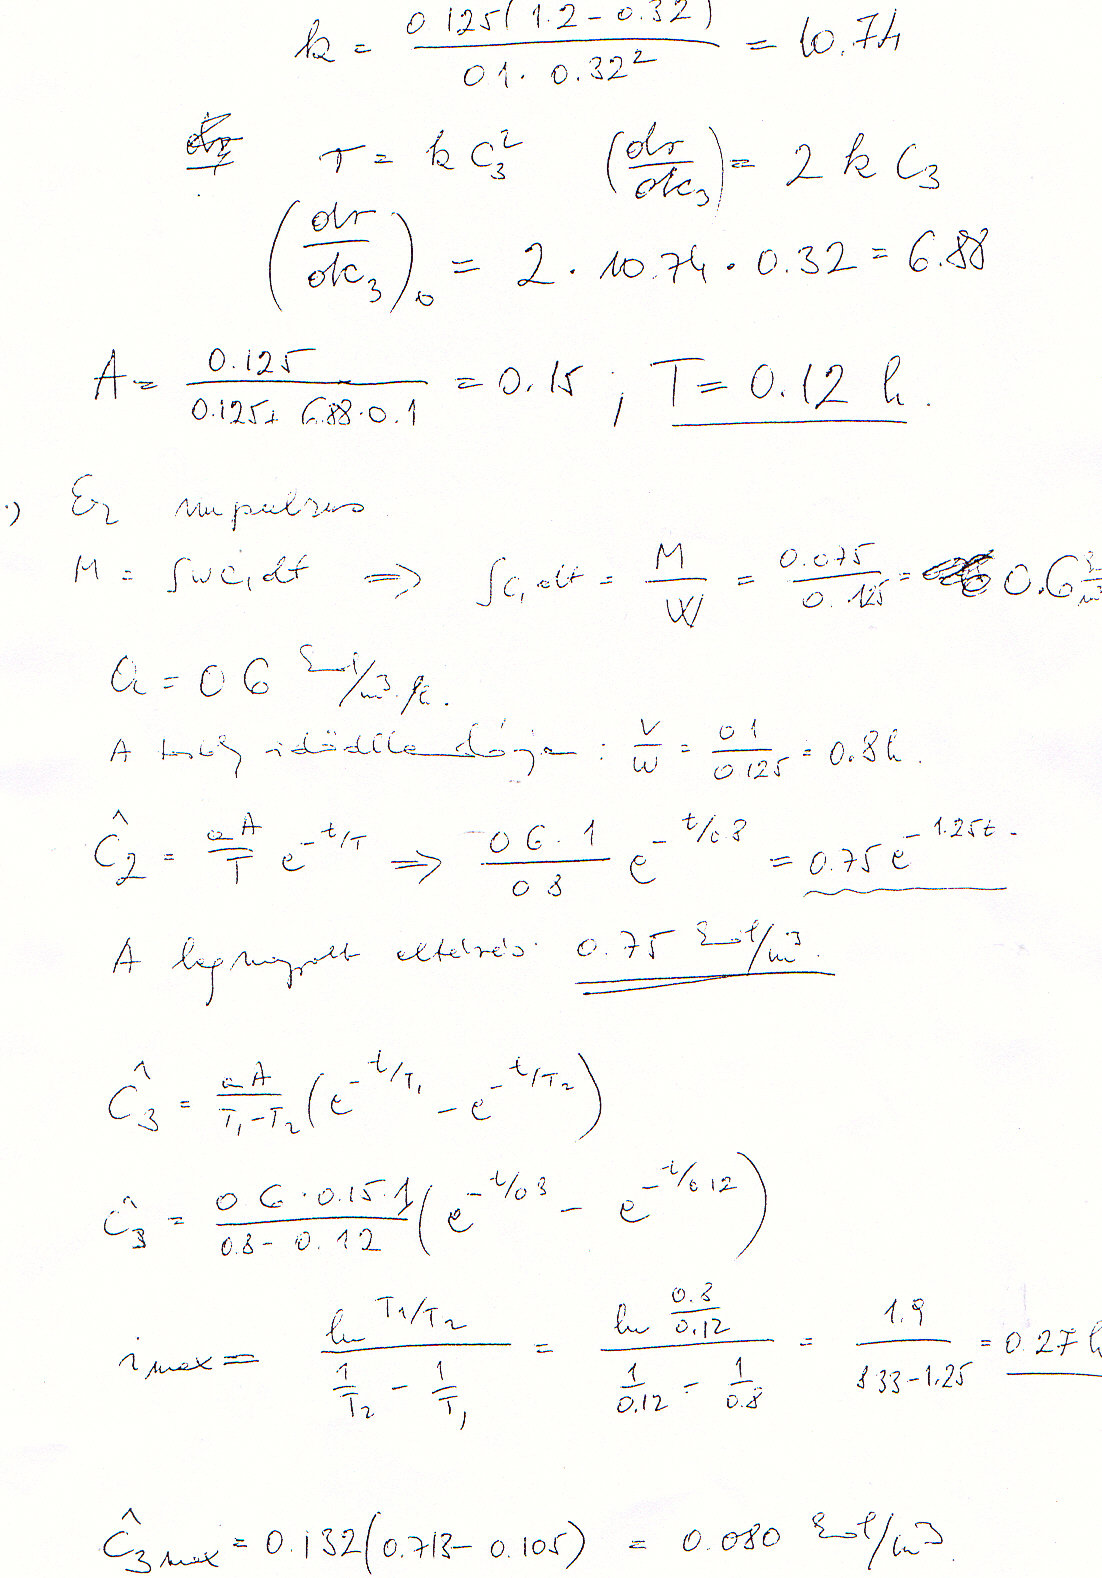 k = 0.125(1.2 - 0.32) / 0.1 · 0.32² = 10.74
r = k C₃² (dr/dc₃) = 2 k C₃
(dr/dc₃)₀ = 2 · 10.74 · 0.32 = 6.88
A = 0.125 / 0.125 + 6.88 · 0.1 = 0.15 ; T = 0.12 h.
·) Ez impulzus
M = ∫wc₁dt ⇒ ∫c₁dt = M/W = 0.075/0.125 = 0.6
a = 0.6 kmol/m³
A időállandója : V/W = 0.1/0.125 = 0.8 h.
Ĉ₂ = aA/T e^(-t/T) ⇒ 0.6 · 1 / 0.8 e^(-t/0.8) = 0.75 e^(-1.25t)
A legnagyobb eltérés: 0.75 kmol/m³.
Ĉ₃ = aA / T₁-T₂ (e^(-t/T₁) - e^(-t/T₂))
Ĉ₃ = 0.6 · 0.15 · 1 / 0.8 - 0.12 (e^(-t/0.8) - e^(-t/0.12))
tmax = ln T₁/T₂ / (1/T₂ - 1/T₁) = ln 0.8/0.12 / (1/0.12 - 1/0.8) = 1.9 / 8.33-1.25 = 0.27 h
Ĉ₃max = 0.132(0.713 - 0.105) = 0.080 kmol/m³.